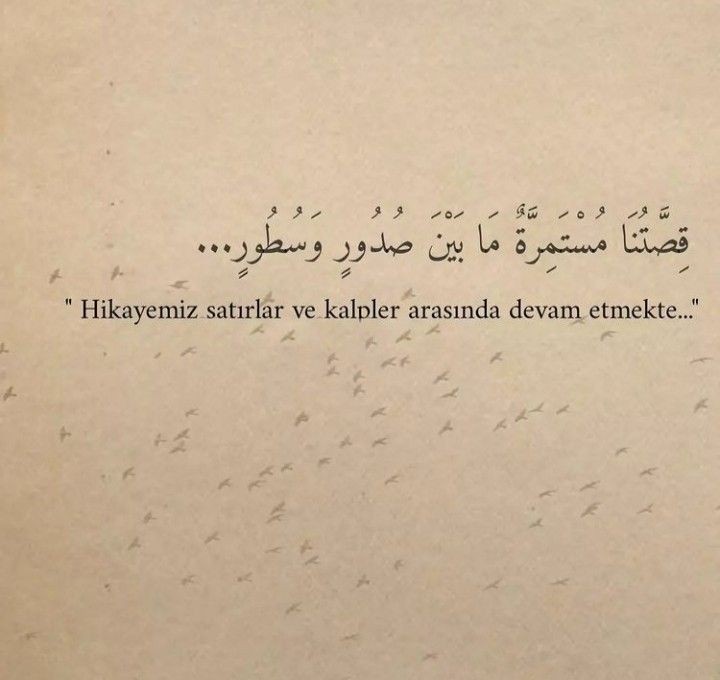 قِصَّتُنَا مُسْتَمِرَّةٌ مَا بَيْنَ صُدُورٍ وَسُطُورٍ...
" Hikayemiz satırlar ve kalpler arasında devam etmekte..."